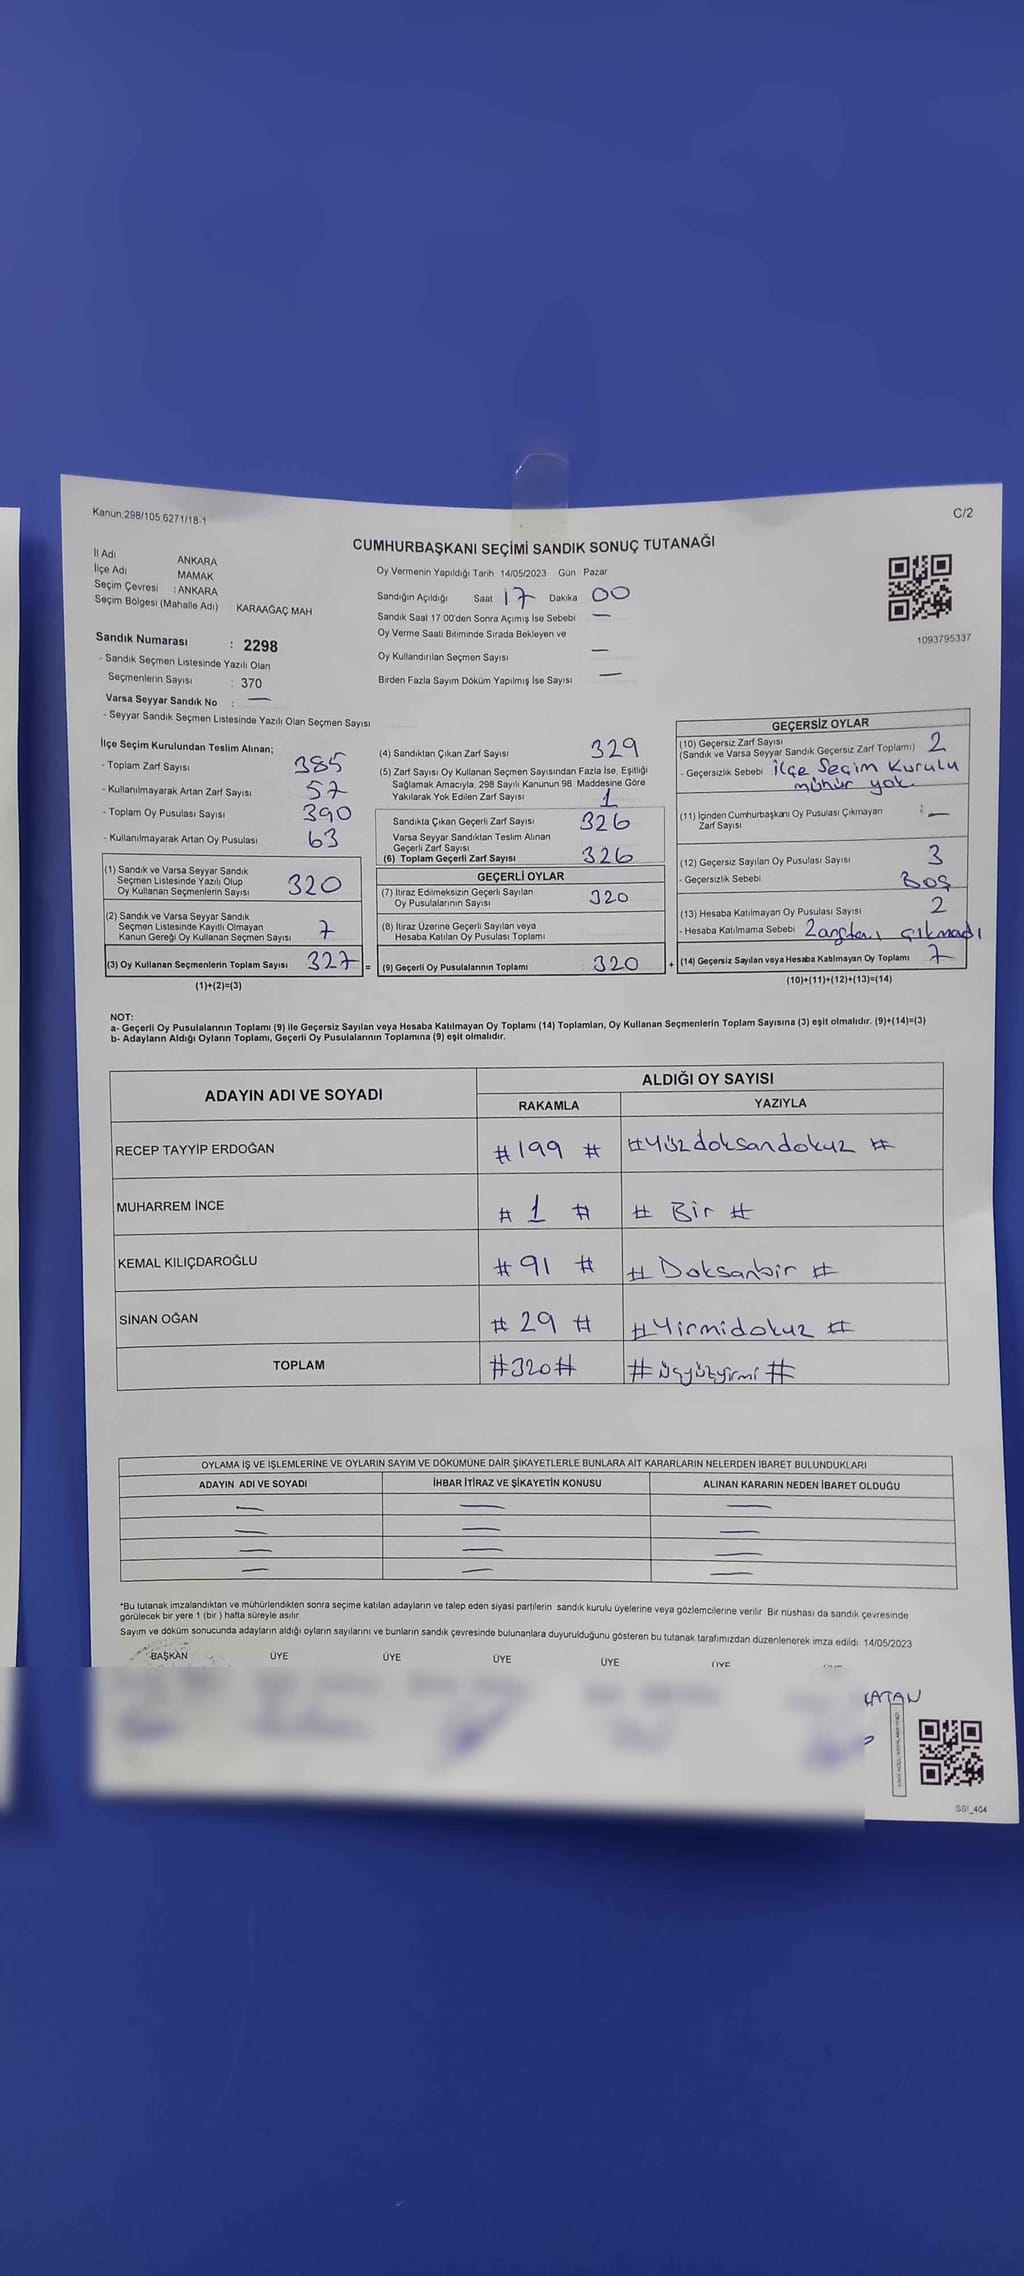 Kanun:298/105,6271/18-1
C/2
CUMHURBAŞKANI SEÇİMİ SANDIK SONUÇ TUTANAĞI
İl Adı ANKARA
İlçe Adı MAMAK
Seçim Çevresi : ANKARA
Seçim Bölgesi (Mahalle Adı) KARAAĞAÇ MAH
Sandık Numarası : 2298
- Sandık Seçmen Listesinde Yazılı Olan
Seçmenlerin Sayısı : 370
Varsa Seyyar Sandık No : —
- Seyyar Sandık Seçmen Listesinde Yazılı Olan Seçmen Sayısı
Oy Vermenin Yapıldığı Tarih 14/05/2023 Gün Pazar
Sandığın Açıldığı Saat 17 Dakika 00
Sandık Saat 17.00'den Sonra Açımış İse Sebebi —
Oy Verme Saati Bitiminde Sırada Bekleyen ve
Oy Kullandırılan Seçmen Sayısı —
Birden Fazla Sayım Döküm Yapılmış İse Sayısı —
1093795337
İlçe Seçim Kurulundan Teslim Alınan;
- Toplam Zarf Sayısı 385
- Kullanılmayarak Artan Zarf Sayısı 57
- Toplam Oy Pusulası Sayısı 390
- Kullanılmayarak Artan Oy Pusulası 63
(1) Sandık ve Varsa Seyyar Sandık
Seçmen Listesinde Yazılı Olup
Oy Kullanan Seçmenlerin Sayısı 320
(2) Sandık ve Varsa Seyyar Sandık
Seçmen Listesinde Kayıtlı Olmayan
Kanun Gereği Oy Kullanan Seçmen Sayısı 7
(3) Oy Kullanan Seçmenlerin Toplam Sayısı 327 =
(1)+(2)=(3)
(4) Sandıktan Çıkan Zarf Sayısı 329
(5) Zarf Sayısı Oy Kullanan Seçmen Sayısından Fazla İse, Eşitliği
Sağlamak Amacıyla, 298 Sayılı Kanunun 98. Maddesine Göre
Yakılarak Yok Edilen Zarf Sayısı 1
Sandıkta Çıkan Geçerli Zarf Sayısı 326
Varsa Seyyar Sandıktan Teslim Alınan
Geçerli Zarf Sayısı
(6) Toplam Geçerli Zarf Sayısı 326
GEÇERLİ OYLAR
(7) İtiraz Edilmeksizin Geçerli Sayılan
Oy Pusulalarının Sayısı 320
(8) İtiraz Üzerine Geçerli Sayılan veya
Hesaba Katılan Oy Pusulası Toplamı
(9) Geçerli Oy Pusulalarının Toplamı : 320 +
GEÇERSİZ OYLAR
(10) Geçersiz Zarf Sayısı
(Sandık ve Varsa Seyyar Sandık Geçersiz Zarf Toplamı) 2
- Geçersizlik Sebebi ilçe Seçim Kurulu
mühür yok.
(11) İçinden Cumhurbaşkanı Oy Pusulası Çıkmayan
Zarf Sayısı : —
(12) Geçersiz Sayılan Oy Pusulası Sayısı 3
- Geçersizlik Sebebi Boş
(13) Hesaba Katılmayan Oy Pusulası Sayısı 2
- Hesaba Katılmama Sebebi çıkmadı
(14) Geçersiz Sayılan veya Hesaba Katılmayan Oy Toplamı 7
(10)+(11)+(12)+(13)=(14)
NOT:
a- Geçerli Oy Pusulalarının Toplamı (9) ile Geçersiz Sayılan veya Hesaba Katılmayan Oy Toplamı (14) Toplamları, Oy Kullanan Seçmenlerin Toplam Sayısına (3) eşit olmalıdır. (9)+(14)=(3)
b- Adayların Aldığı Oyların Toplamı, Geçerli Oy Pusulalarının Toplamına (9) eşit olmalıdır.
ADAYIN ADI VE SOYADI ALDIĞI OY SAYISI
RAKAMLA YAZIYLA
RECEP TAYYİP ERDOĞAN #199 # #Yüzdoksandokuz #
MUHARREM İNCE # 1 # # Bir #
KEMAL KILIÇDAROĞLU #91 # # Doksanbir #
SİNAN OĞAN # 29 # #Yirmidokuz #
TOPLAM #320# #üçyüzyirmi #
OYLAMA İŞ VE İŞLEMLERİNE VE OYLARIN SAYIM VE DÖKÜMÜNE DAİR ŞİKAYETLERLE BUNLARA AİT KARARLARIN NELERDEN İBARET BULUNDUKLARI
ADAYIN ADI VE SOYADI İHBAR İTİRAZ VE ŞİKAYETİN KONUSU ALINAN KARARIN NEDEN İBARET OLDUĞU
— — —
— — —
— — —
— — —
*Bu tutanak imzalandıktan ve mühürlendikten sonra seçime katılan adayların ve talep eden siyasi partilerin sandık kurulu üyelerine veya gözlemcilerine verilir. Bir nüshası da sandık çevresinde
görülecek bir yere 1 (bir ) hafta süreyle asılır.
Sayım ve döküm sonucunda adayların aldığı oyların sayılarını ve bunların sandık çevresinde bulunanlara duyurulduğunu gösteren bu tutanak tarafımızdan düzenlenerek imza edildi. 14/05/2023
BAŞKAN ÜYE ÜYE ÜYE ÜYE ÜYE
KATAN
SSI_404